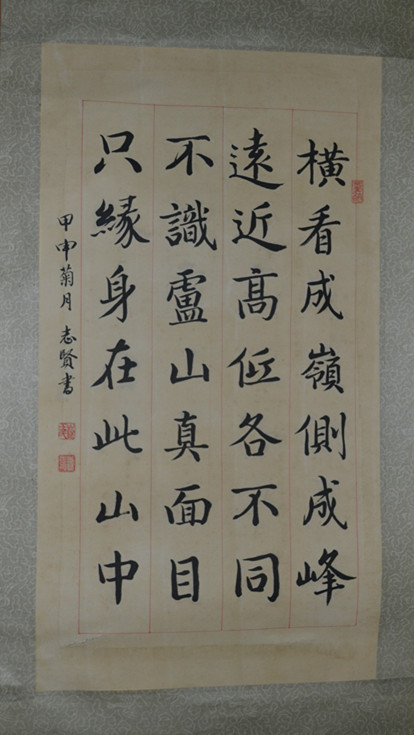 橫看成嶺側成峰
遠近高低各不同
不識盧山真面目
只緣身在此山中
甲申菊月 志賢書